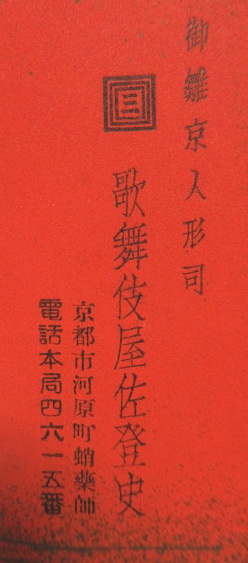 御雛京人形司
歌舞伎屋佐登史
京都市河原町蛸藥師
電話本局四六一五番